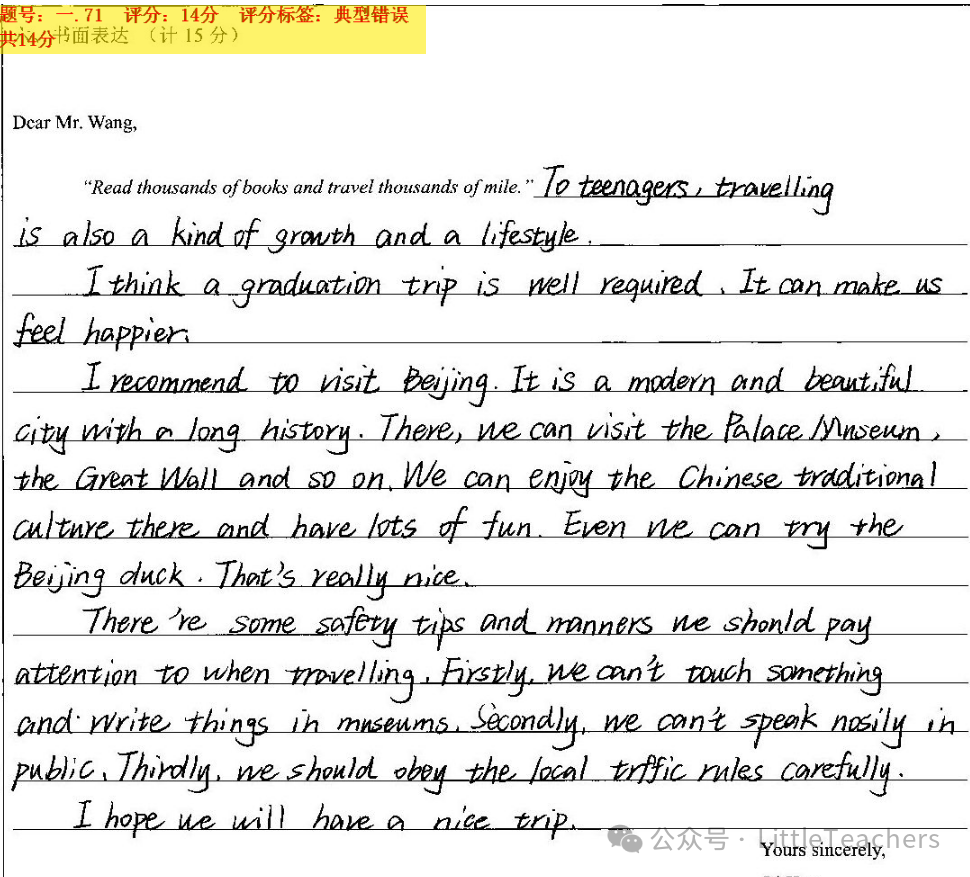 题号：一.71 评分：14分 评分标签：典型错误
共14分 书面表达 （计 15 分）
Dear Mr. Wang,
“Read thousands of books and travel thousands of mile.” To teenagers, travelling
is also a kind of growth and a lifestyle.
I think a graduation trip is well required. It can make us
feel happier.
I recommend to visit Beijing. It is a modern and beautiful
city with a long history. There, we can visit the Palace Museum,
the Great Wall and so on. We can enjoy the Chinese traditional
culture there and have lots of fun. Even we can try the
Beijing duck. That's really nice.
There 're some safety tips and manners we should pay
attention to when travelling. Firstly, we can't touch something
and write things in museums. Secondly, we can't speak nosily in
public. Thirdly, we should obey the local trffic rules carefully.
I hope we will have a nice trip.
公众号 · LittleTeachers
Yours sincerely,